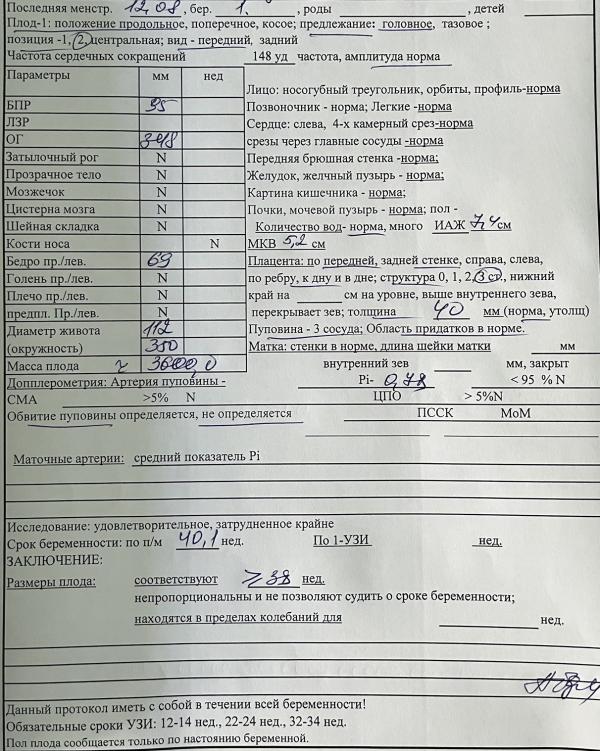 Последняя менстр. 12.08, бер. 1, роды , детей
Плод-1: положение продольное, поперечное, косое; предлежание: головное, тазовое ;
позиция -1, 2, центральная; вид - передний, задний
Частота сердечных сокращений 148 уд частота, амплитуда норма
Параметры мм нед
БПР 95
ЛЗР
ОГ 348
Затылочный рог N
Прозрачное тело N
Мозжечок N
Цистерна мозга N
Шейная складка N
Кости носа N
Бедро пр./лев. 69
Голень пр./лев. N
Плечо пр./лев. N
предпл. Пр./лев. N
Диаметр живота 112
(окружность) 350
Масса плода 3600,0
Лицо: носогубный треугольник, орбиты, профиль-норма
Позвоночник - норма; Легкие -норма
Сердце: слева, 4-х камерный срез-норма
срезы через главные сосуды -норма
Передняя брюшная стенка -норма;
Желудок, желчный пузырь - норма;
Картина кишечника - норма;
Почки, мочевой пузырь - норма; пол -
Количество вод- норма, много ИАЖ 7,4 см
МКВ 5,2 см
Плацента: по передней, задней стенке, справа, слева,
по ребру, к дну и в дне; структура 0, 1, 2, 3 ст., нижний
край на см на уровне, выше внутреннего зева,
перекрывает зев; толщина 40 мм (норма, утолщ)
Пуповина - 3 сосуда; Область придатков в норме.
Матка: стенки в норме, длина шейки матки мм
внутренний зев мм, закрыт
Допплерометрия: Артерия пуповины - Pi- 0,78 < 95 % N
СМА >5% N ЦПО > 5%N
Обвитие пуповины определяется, не определяется ПССК МоМ
Маточные артерии: средний показатель Pi
Исследование: удовлетворительное, затрудненное крайне
Срок беременности: по п/м 40,1 нед. По 1-УЗИ нед.
ЗАКЛЮЧЕНИЕ:
Размеры плода: соответствуют ≥ 38 нед.
непропорциональны и не позволяют судить о сроке беременности;
находятся в пределах колебаний для нед.
Данный протокол иметь с собой в течении всей беременности!
Обязательные сроки УЗИ: 12-14 нед., 22-24 нед., 32-34 нед.
Пол плода сообщается только по настоянию беременной.